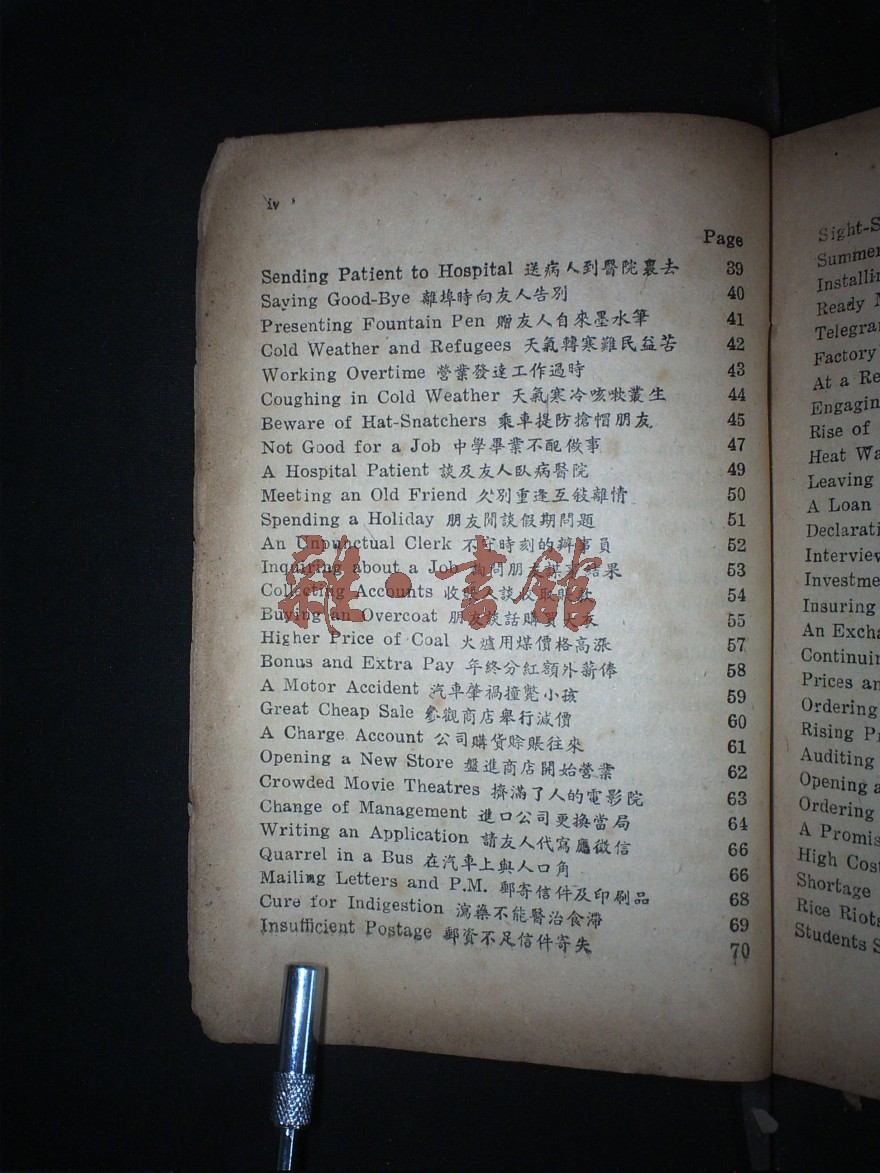 iv
Page
Sending Patient to Hospital 送病人到醫院裏去 39
Saying Good-Bye 離埠時向友人告別 40
Presenting Fountain Pen 贈友人自來墨水筆 41
Cold Weather and Refugees 天氣轉寒難民益苦 42
Working Overtime 營業發達工作過時 43
Coughing in Cold Weather 天氣寒冷咳嗽叢生 44
Beware of Hat-Snatchers 乘車提防搶帽朋友 45
Not Good for a Job 中學畢業不配做事 47
A Hospital Patient 談及友人臥病醫院 49
Meeting an Old Friend 久別重逢互敍離情 50
Spending a Holiday 朋友閒談假期問題 51
An Unpunctual Clerk 不守時刻的辦事員 52
Inquiring about a Job 詢問朋友謀事結果 53
Collecting Accounts 收賬人談收取賬款 54
Buying an Overcoat 朋友談話購買大衣 55
Higher Price of Coal 火爐用煤價格高漲 57
Bonus and Extra Pay 年終分紅額外薪俸 58
A Motor Accident 汽車肇禍撞斃小孩 59
Great Cheap Sale 參觀商店舉行減價 60
A Charge Account 公司購貨賒賬往來 61
Opening a New Store 盤進商店開始營業 62
Crowded Movie Theatres 擠滿了人的電影院 63
Change of Management 進口公司更換當局 64
Writing an Application 請友人代寫應徵信 66
Quarrel in a Bus 在汽車上與人口角 66
Mailing Letters and P.M. 郵寄信件及印刷品 68
Cure for Indigestion 瀉藥不能醫治食滯 69
Insufficient Postage 郵資不足信件寄失 70
雜·書館
Sight-S
Summer
Installi
Ready
Telegra
Factory
At a Re
Engagin
Rise of
Heat Wa
Leaving
A Loan
Declarati
Interview
Investme
Insuring
An Excha
Continui
Prices an
Ordering
Rising P
Auditing
Opening a
Ordering
A Promis
High Cost
Shortage
Rice Riots
Students S